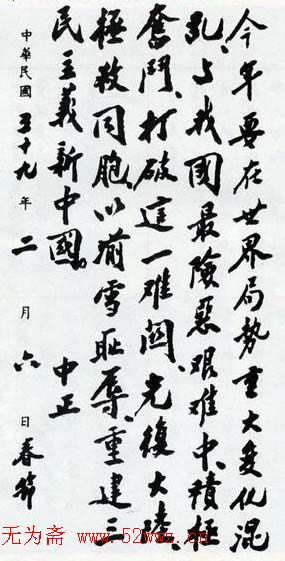 今年要在世界局勢重大变化混
乱、与我國最險惡艱難中、積極
奮鬥、打破這一难関、光復大陸、
拯救同胞、以湔雪耻辱、重建三
民主義新中國。 中正
中華民國五十九年二月六日春節
无为斋 www.52wwz.cn